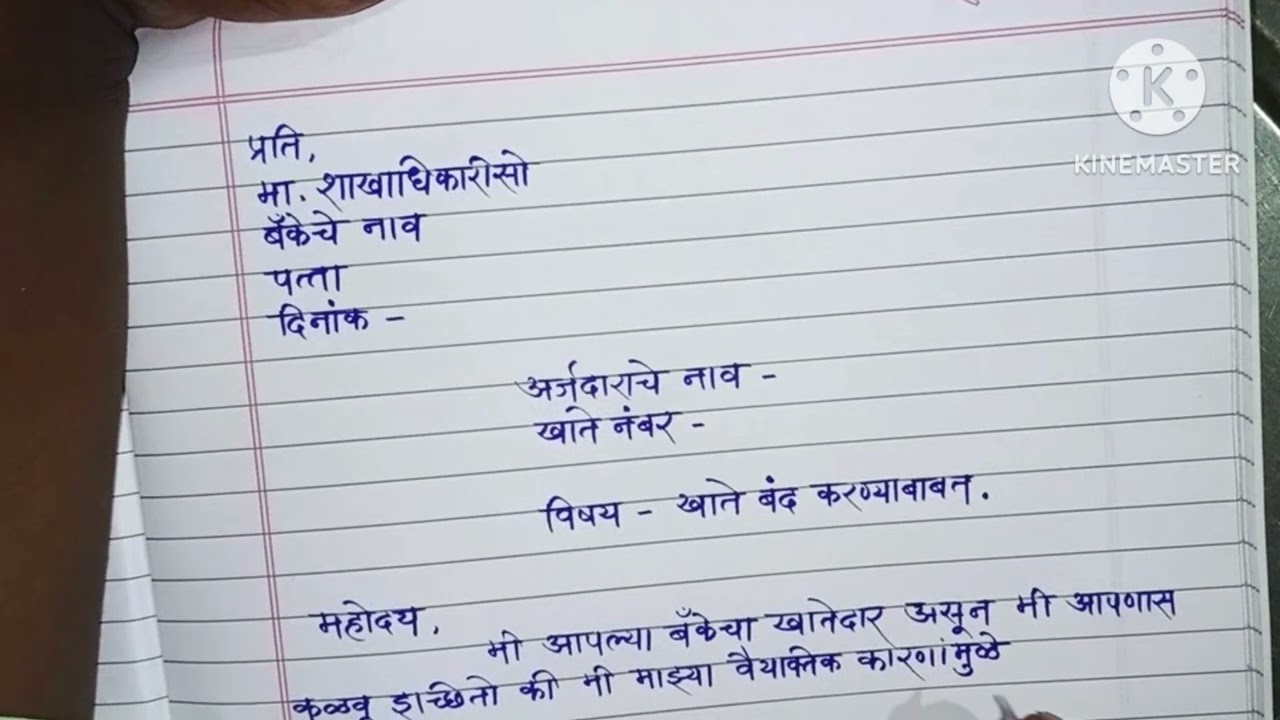 प्रति,
मा. शाखाधिकारीसो
बँकेचे नाव
पत्ता
दिनांक -
अर्जदाराचे नाव -
खाते नंबर -
विषय - खाते बंद करण्याबाबत.
महोदय,
मी आपल्या बँकेचा खातेदार असून मी आपणास
कळवू इच्छितो की मी माझ्या वैयक्तिक कारणांमुळे
K
KINEMASTER